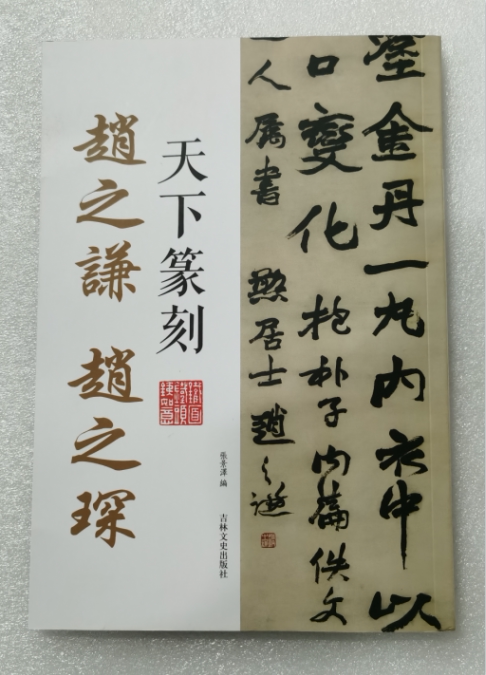 塗金丹一丸內衣中以
口變化抱朴子內篇佚文
人屬書 㷸居士趙之謙
天下篆刻
張景澤 編
吉林文史出版社
趙之謙 趙之琛